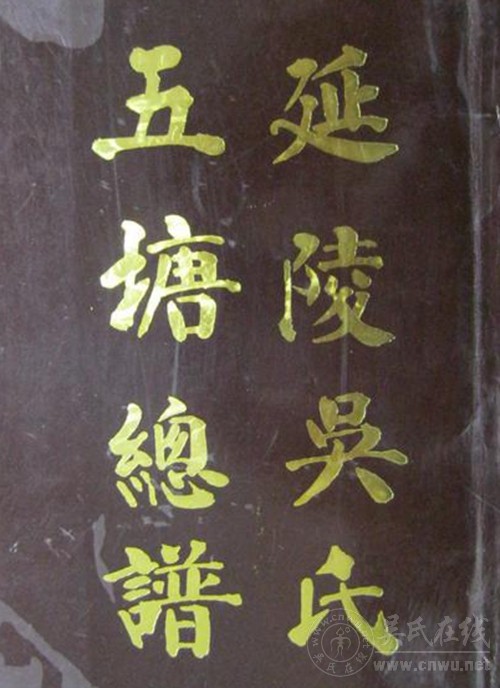 延陵吳氏
五塘總譜
吴氏在线
www.cnwu.net